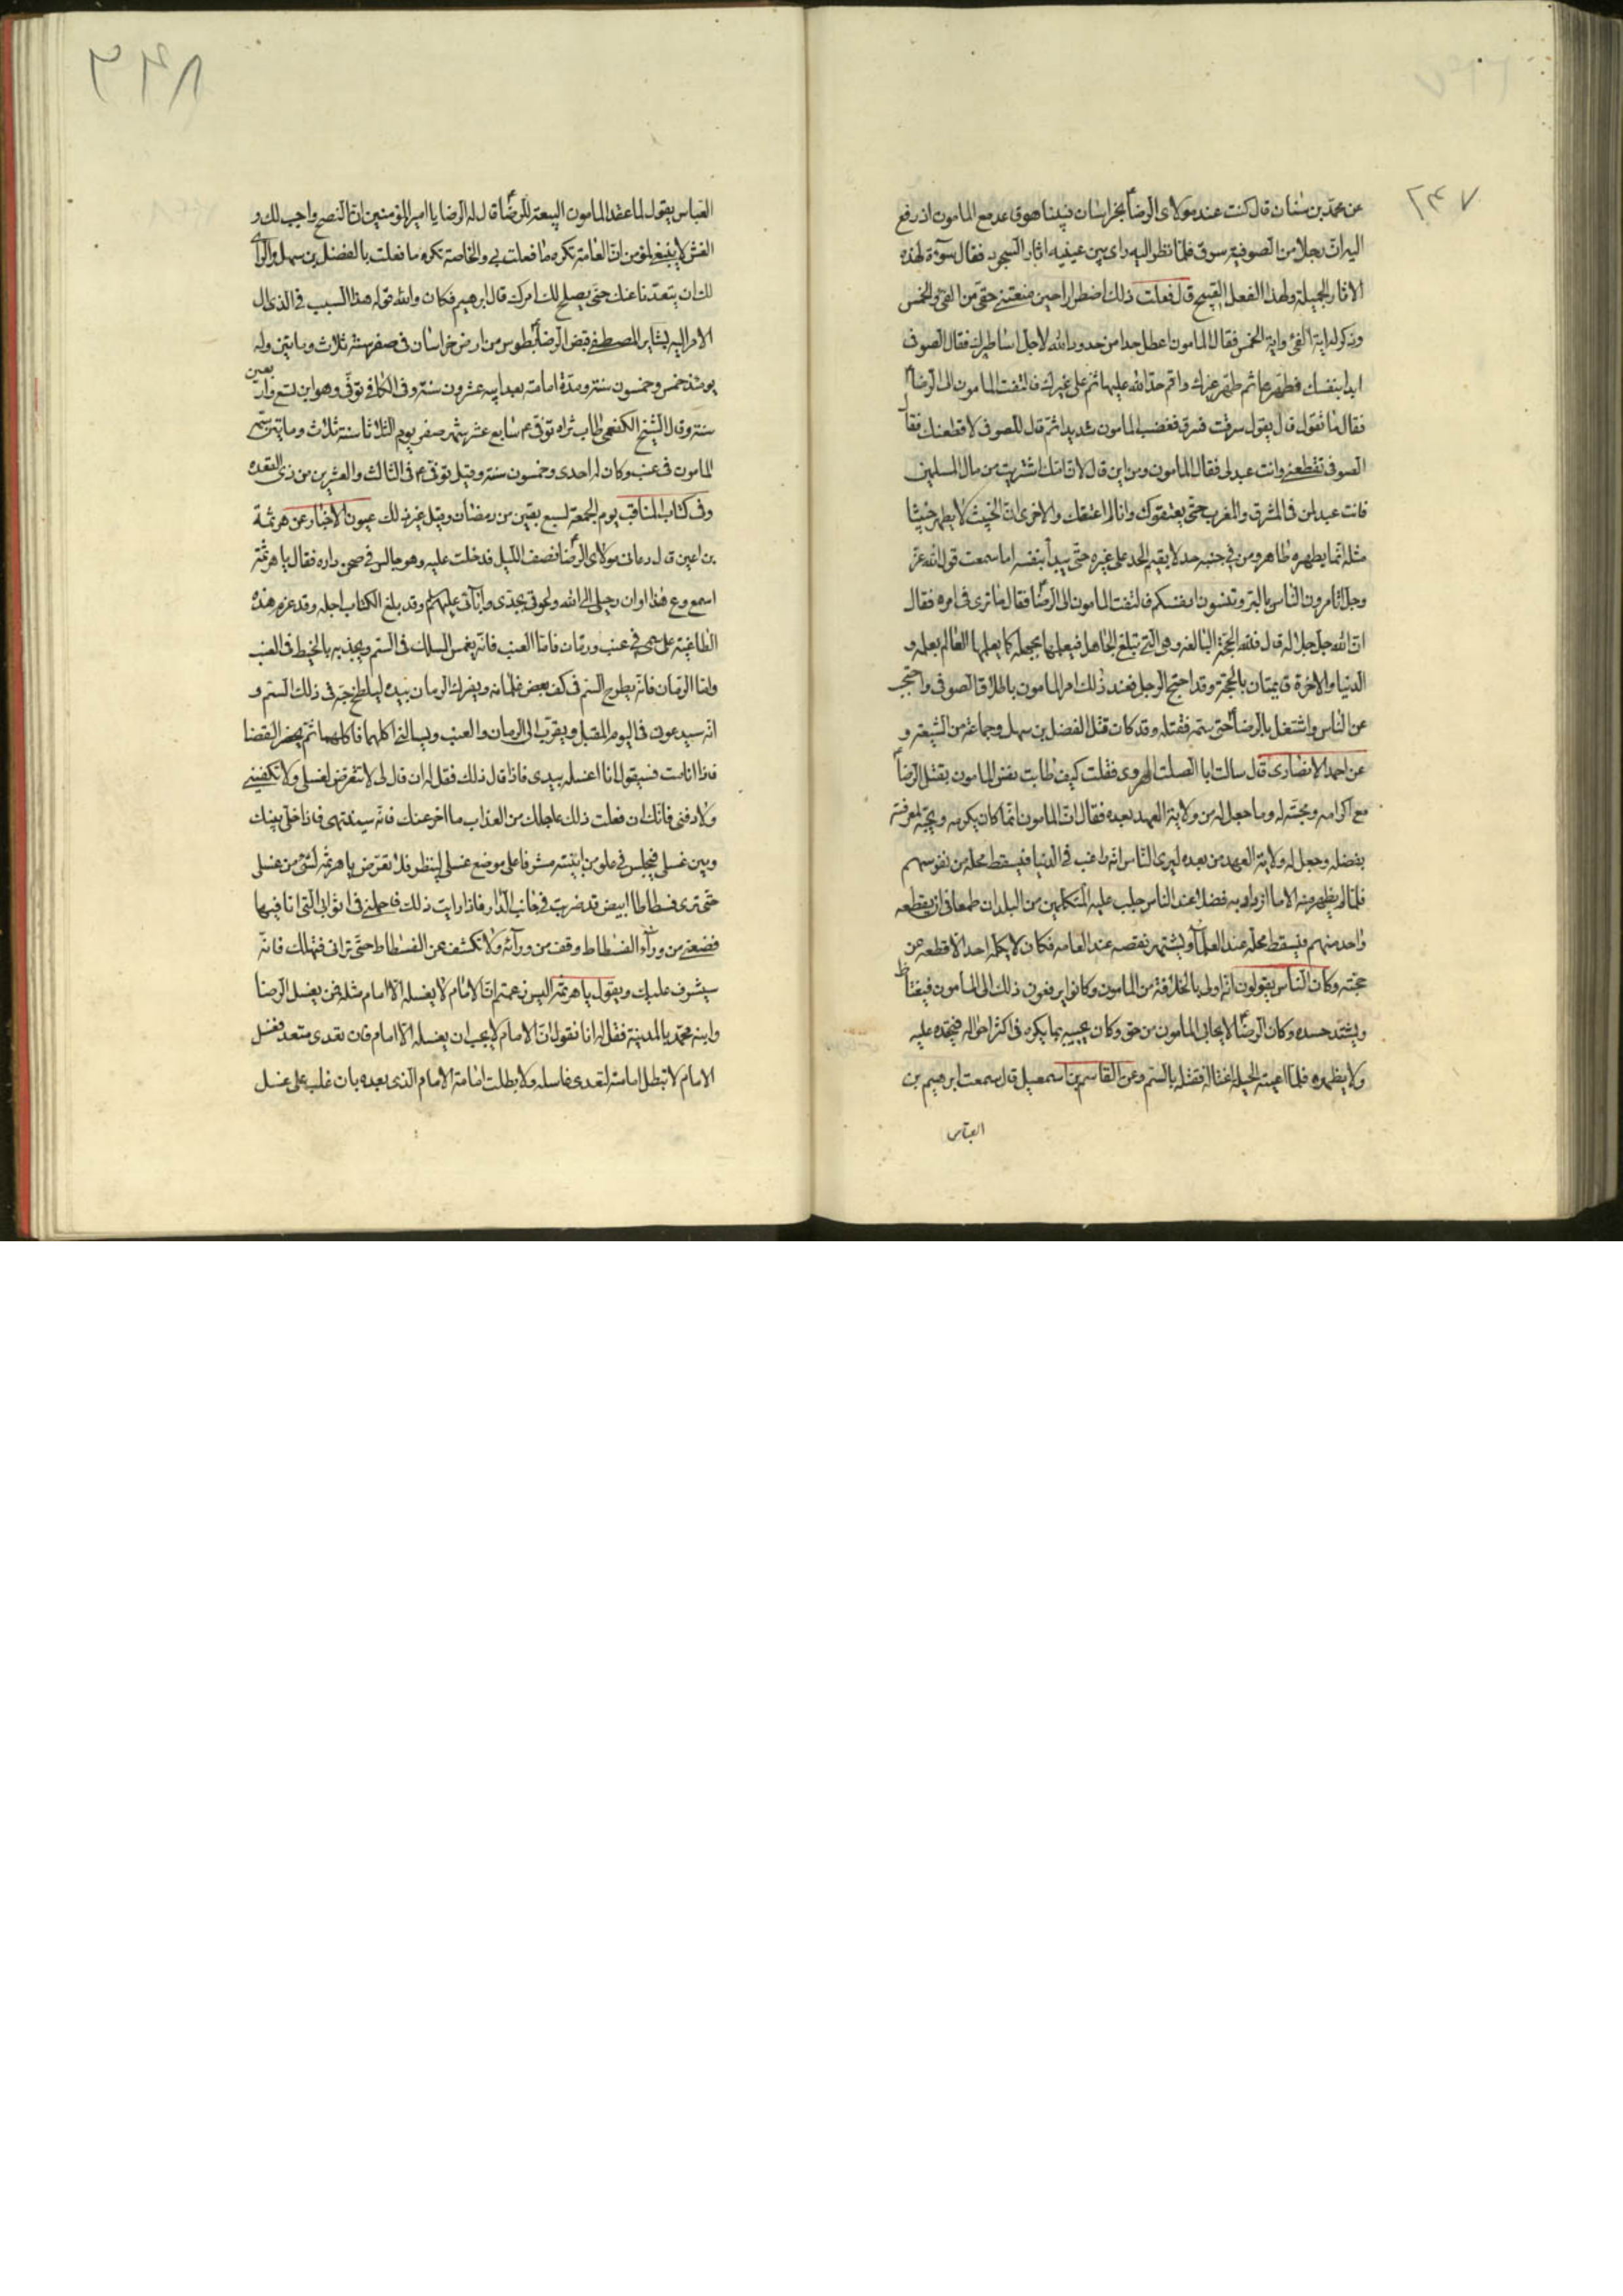 ٢٣٧
عن محمد بن سنان قال كنت عند مولاى الرضا ع بخراسان فبينا هو قاعد مع المامون اذ رفع
اليه ان رجلا من الصوفية سرق فلما نظر اليه راى بين عينيه اثار السجود فقال سوءة لهذه
الاثار الجميلة ولهذا الفعل القبيح قال فعلت ذلك اضطرارا حين منعتنى حقى من الفئ والخمس
وذكر له اية الفئ واية الخمس فقال المامون اعطل حدا من حدود الله لاجل اساطيرك فقال الصوفى
ابدا بنفسك فطهرها ثم طهر غيرك واقم حد الله عليها ثم على غيرك فالتفت المامون الى الرضا ع
فقال ما تقول قال يقول سرقت فسرق فغضب المامون شديدا ثم قال للصوفى لاقطعنك فقال
الصوفى تقطعنى وانت عبد لى فقال المامون ومن اين قال لان امك اشتريت من مال المسلمين
فانت عبد لمن فى المشرق والمغرب حتى يعتقوك وانا لم اعتقك والاخرى ان الخبيث لا يطهر خبيثا
مثله انما يطهره طاهر ومن فى جنبه حد لا يقيم الحد على غيره حتى يبدأ بنفسه اما سمعت قول الله عز
وجل اتامرون الناس بالبر وتنسون انفسكم فالتفت المامون الى الرضا ع فقال ما ترى فى امره فقال
ان الله جل جلاله قال فلله الحجة البالغة وهى التى تبلغ الجاهل فيعلمها بجهله كما يعلمها العالم بعلمه و
الدنيا والاخرة قايمتان بالحجة وقد احتج الرجل فعند ذلك امر المامون باطلاق الصوفى واحتجب
عن الناس واشتغل بالرضا ع حتى سمه فقتله وقد كان قتل الفضل بن سهل وجماعة من الشيعة و
عن احمد الانصارى قال سالت ابا الصلت الهروى فقلت كيف طابت نفس المامون بقتل الرضا ع
مع اكرامه ومحبته له وما جعل له من ولاية العهد بعده فقال ان المامون انما كان يكرمه ويحبه لمعرفته
بفضله وجعل له ولاية العهد من بعده ليرى الناس انه راغب فى الدنيا فيسقط محله من نفوسهم
فلما لم يظهر منه الا ما ازداد به فضلا عند الناس جلب عليه المتكلمين من البلدان طمعا فى ان يقطعه
واحد منهم فيسقط محله عند العلمآء ويشتهر نقصه عند العامه فكان لا يكلمه احد الا قطعه عن
حجته وكان الناس يقولون انه اولى بالخلافة من المامون وكانوا يرفعون ذلك الى المأمون فيغتاظ
ويشتد حسده وكان الرضا ع لا يحابى المامون من حق وكان يجيبه بما يكره فى اكثر احواله فيحقده عليه
ولا يظهره فلما اعيته الحيلة اغتاله فقتله بالسم وعن القاسم بن اسمعيل قال سمعت ابرهيم بن
العباس
العباس يقول لما عقد المامون البيعة للرضا ع قال له الرضا يا امير المؤمنين ان النصح واجب لك و
الغش لا ينبغى لمؤمن ان العامة تكره ما فعلت بى والخاصة تكره ما فعلت بالفضل بن سهل والراى
لك ان يتعدنا عنك حتى يصلح لك امرك قال ابرهيم فكان والله قوله هذا السبب فى الذى ال
الامر اليه قبض الرضا ع بطوس من ارض خراسان فى صفر سنة ثلاث ومايتين وله
يومئذ خمس وخمسون سنة ومدة امامته بعد ابيه عشرون سنة وفى الكافى توفى وهو ابن تسع واربعين
سنة وقال الشيخ الكفعمى طاب ثراه توفى ع م سابع عشر شهر صفر يوم الثلاثا سنة ثلاث وماتين سمه
المامون فى عنب وكان له احدى وخمسون سنة وقيل توفى ع م فى الثالث والعشرين من ذى القعده
وفى كتاب المناقب يوم الجمعة لسبع بقين من رمضان وقيل غير ذلك عيون الاخبار عن هرثمة
بن اعين قال دعانى مولاى الرضا ع نصف الليل فدخلت عليه وهو جالس فى صحن داره فقال يا هرثمة
اسمع وع هذا اوان رحيلى الى الله ولحوقى بجدى وابآئى عليهم السلام وقد بلغ الكتاب اجله وقد عزم هذه
الطاغية على سمى فى عنب ورمان فاما العنب فانه يغمس السلك فى السم ويجذبه بالخيط فى العنب
واما الرمان فانه يطرح السم فى كف بعض غلمانه ويفرك الرمان بيده ليلطخ حبه فى ذلك السم و
انه سيدعونى فى اليوم المقبل ويقرب الى الرمان والعنب ويسالنى اكلهما فاكلهما ثم يحضر القضا
فاذا انا مت فسيقول انا اغسله بيدى فاذا قال ذلك فقل له ان قال لى لا تتعرض لغسلى ولا تكفينى
ولا دفنى فانك ان فعلت ذلك عاجلك من العذاب ما اخر عنك فانه سينتهى فاذا خلى بينك
وبين غسلى فيجلس فى علو من ابنيته مشرفا على موضع غسلى لينظر فلا تعرض يا هرثمة لشئ من غسلى
حتى ترى فسطاطا ابيض قد ضربت فى جانب الدار فاذا رايت ذلك فاحملنى فى اثوابى التى انا فيها
فضعنى من ورآء الفسطاط وقف من ورآئه ولا تكشف عن الفسطاط حتى ترانى فتهلك فانه
سيشرف عليك ويقول يا هرثمة اليس زعمتم ان الامام لا يغسله الا امام مثله فمن يغسل الرضا
وابنه محمد بالمدينة فقل له انا نقول ان الامام لا يجب ان يغسله الا امام فان تعدى متعد فغسل
الامام لا تبطل امامته لتعدى غاسله ولا بطلت امامة الامام الذى بعده بان غلب على غسل